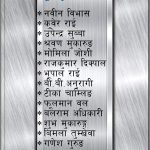 नवीन विभास
कुवेर राई
उपेन्द्र सुब्बा
श्रवण मुकारुङ
मोमिला जोशी
राजकुमार दिक्पाल
भूपाल राई
बी.बी.अनुरागी
टीका चाम्लिङ
फूलमान वल
बलराम अधिकारी
शुभ मुकारुङ
बिमला तुम्खेवा
गणेश गुरुङ